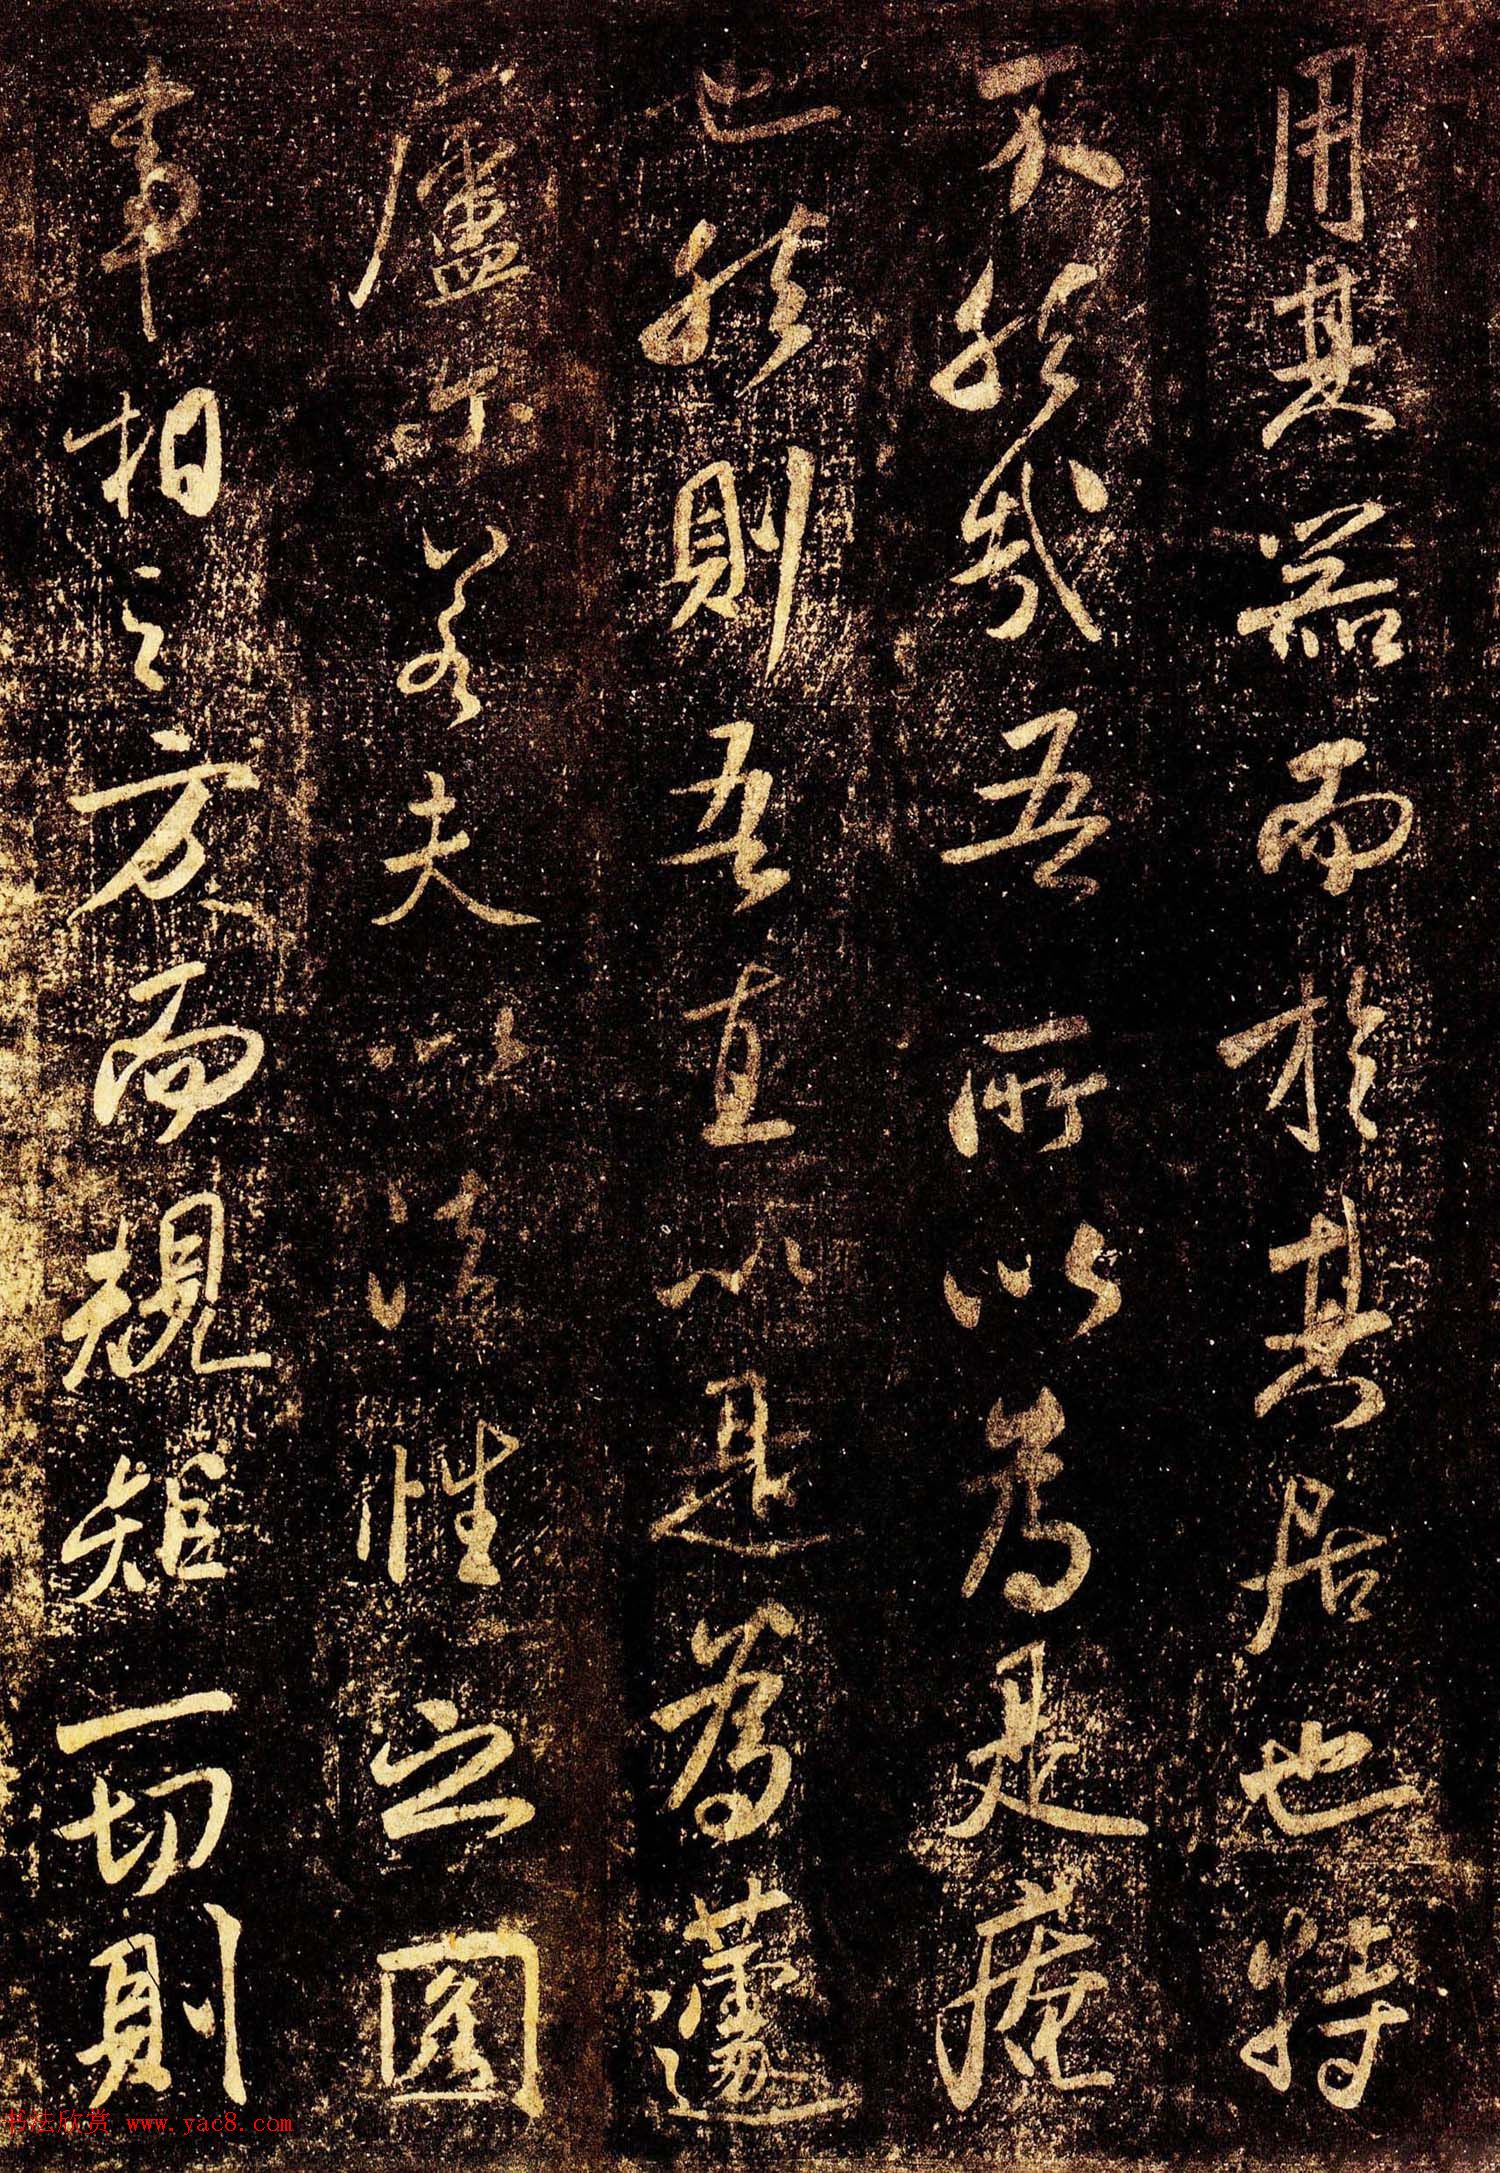 用其器而於其居也特
不然哉吾所以為是庵
也然則吾直以是為蘧
廬尔若夫以法性之圓
事相之方而規矩一切則
书法欣赏 www.yac8.com